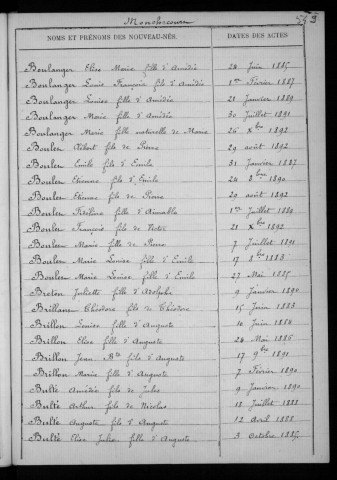 NOMS ET PRÉNOMS DES NOUVEAU-NÉS. DATES DES ACTES
Boulanger Elise Marie fille d'Amédée 24 Juin 1885
Boulanger Louis François fils d'Amédée 1er Février 1887
Boulanger Louise fille d'Amédée 21 Janvier 1889
Boulanger Marie fille d'Amédée 30 Juillet 1891
Boulanger Marie fille naturelle de Marie 26 Xbre 1892
Boulen Albert fils de Pierre 29 août 1892
Boulen Emile fils d'Emile 31 Janvier 1887
Boulen Etienne fils d'Emile 24 8bre 1890
Boulen Etienne fils de Pierre 29 août 1892
Boulen fille d'Aimable 1er Juillet 1884
Boulen François fils de Victor 21 Xbre 1892
Boulen Marie fille de Pierre 7 Juillet 1891
Boulen Marie Louise fille d'Emile 17 8bre 1883
Boulen Marie Louise fille d'Emile 27 Mai 1885
Breton Juliette fille d'Adolphe 9 Janvier 1890
Brillant Théodore fils de Théodore 15 Juin 1883
Brillon Louise fille d'Auguste 10 Juin 1884
Brillon Elise fille d'Auguste 24 Mai 1886
Brillon Jean Bte fils d'Auguste 17 9bre 1891
Brillon Marie fille d'Auguste 7 Février 1890
Bulté Amédée fils de Jules 9 Janvier 1890
Bulté Arthur fils de Nicolas 13 Juillet 1888
Bulté Auguste fils d'Auguste 12 Avril 1888
Bulté Elise Julie fille d'Auguste 3 Octobre 1885